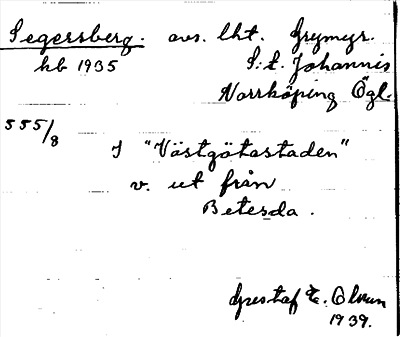 Segersberg. avs. lht. Grymyr.
hb 1935 S:t. Johannis
Norrköping Ögl.
555/8
I "Västgötastaden"
v. ut från
Betesda.
Gustaf E.
1939.